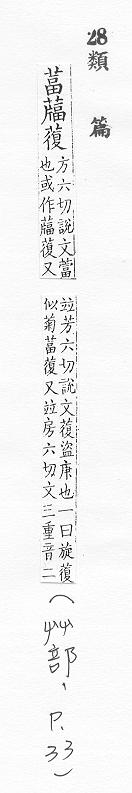 28
類篇
葍藑蕧方六切說文葍
也或作藑蕧又
竝芳六切說文蕧盜庚也一曰旋蕧
似菊葍蕧又竝房六切文三重音二
(艸部，P.33)